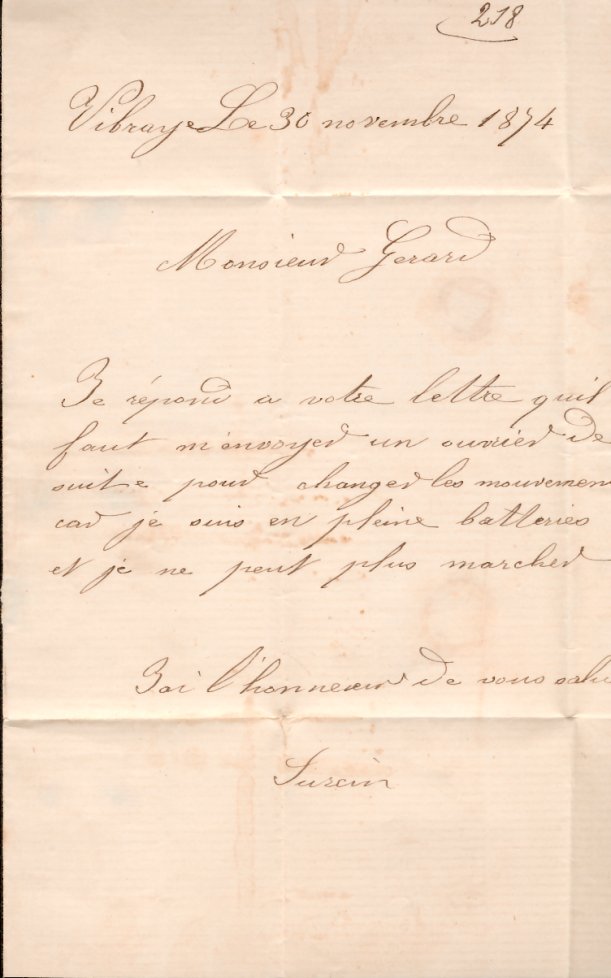 218
Vibraye Le 30 novembre 1874
Monsieur Gerard
Je répond a votre lettre quil
faut m'envoyer un ouvrier de
suite pour changer les mouvemen
car je suis en pleine batteries
et je ne peut plus marcher
Jai l'honneur de vous salu